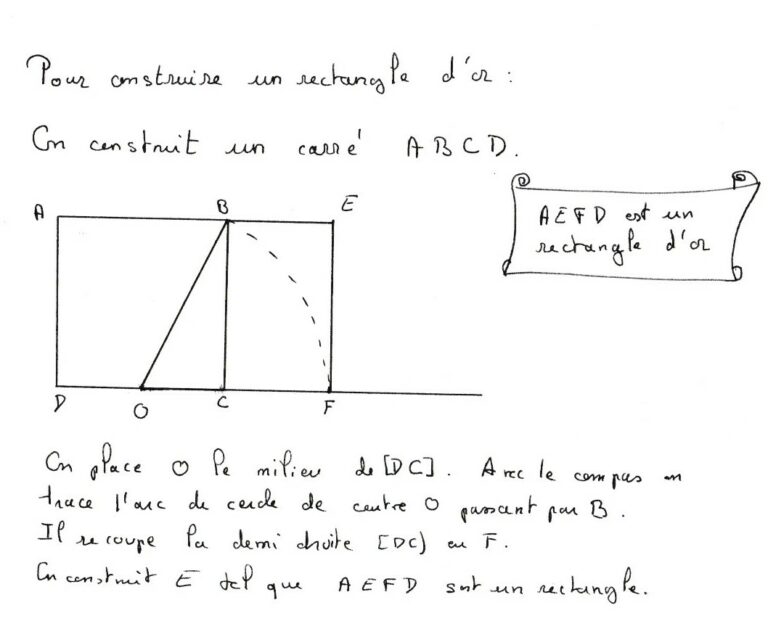 Pour construire un rectangle d'or :
On construit un carré A B C D.
A B E
AEFD est un
rectangle d'or
D O C F
On place O le milieu de [DC]. Avec le compas on
trace l'arc de cercle de centre O passant par B.
Il recoupe la demi droite [DC) en F.
On construit E tel que AEFD soit un rectangle.